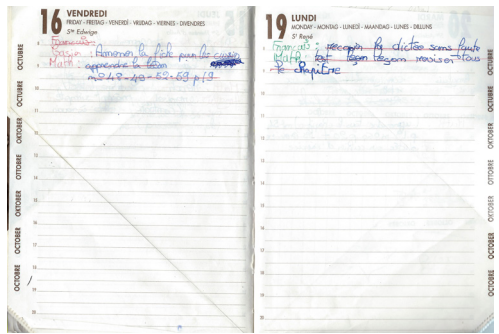 16 VENDREDI
FRIDAY - FREITAG - VENERDÌ - VRIJDAG - VIERNES - DIVENDRES
Ste Edwige
Français
: Amener la fiche pour
Math : apprendre la leçon
n° 48-49-52-59 p 19
OCTUBRE
OCTOBER
OKTOBER
OTTOBRE
OCTOBER
OCTOBRE
19 LUNDI
MONDAY - MONTAG - LUNEDÌ - MAANDAG - LUNES - DILLUNS
St René
Français : recopier la dictée sans faute
Math : test leçon leçon reviser tous
le chapitre
OCTUBRE
OCTUBRE
OKTOBER
OTTOBRE
OKTOBER
OCTOBER
OCTOBRE